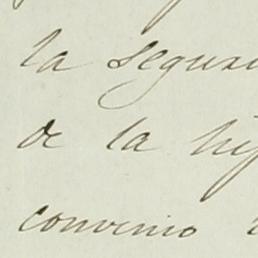 la segu
de la hij
convenio